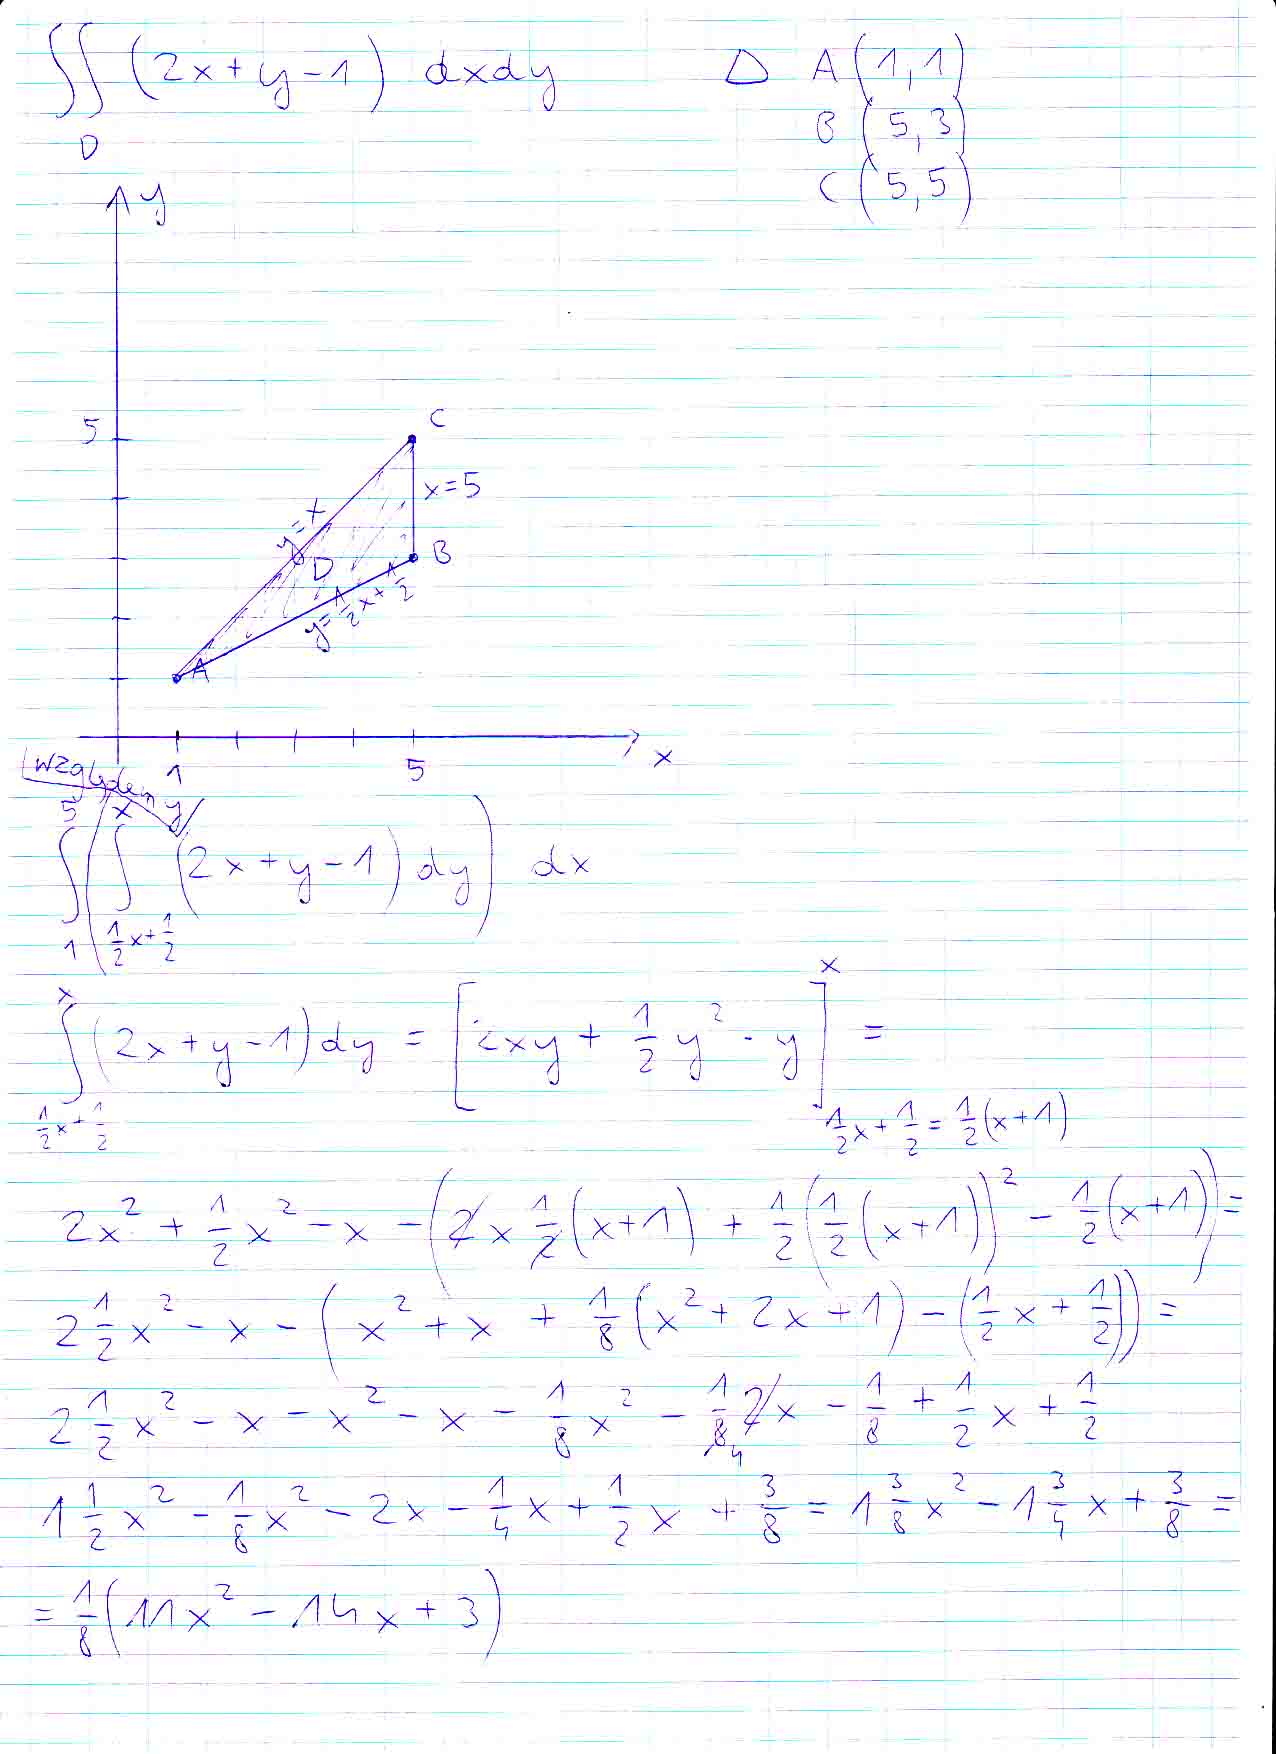 ∬_D (2x+y-1) dxdy   Δ A(1,1)
B(5,3)
C(5,5)
y
C
5
x=5
y=x
B
D
y=1/2x+1/2
A
1 5 x
względem y
∫_1^5 (∫_{1/2x+1/2}^x (2x+y-1) dy) dx
∫_{1/2x+1/2}^x (2x+y-1)dy = [2xy + 1/2 y² - y]_{1/2x+1/2=1/2(x+1)}^x =
2x² + 1/2x² - x - (2x 1/2(x+1) + 1/2(1/2(x+1))² - 1/2(x+1)) =
2 1/2x² - x - (x² + x + 1/8(x²+2x+1) - (1/2x + 1/2)) =
2 1/2x² - x - x² - x - 1/8x² - 1/8 2x - 1/8 + 1/2x + 1/2
1 1/2x² - 1/8x² - 2x - 1/4x + 1/2x + 3/8 = 1 3/8x² - 1 3/4x + 3/8 =
= 1/8(11x² - 14x + 3)